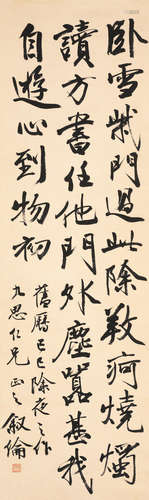 卧雪門過此除救疴燒燭
讀方書任他門外塵囂甚我
自遊心到物初
舊曆己巳除夜之作
九思仁兄正之 叙倫